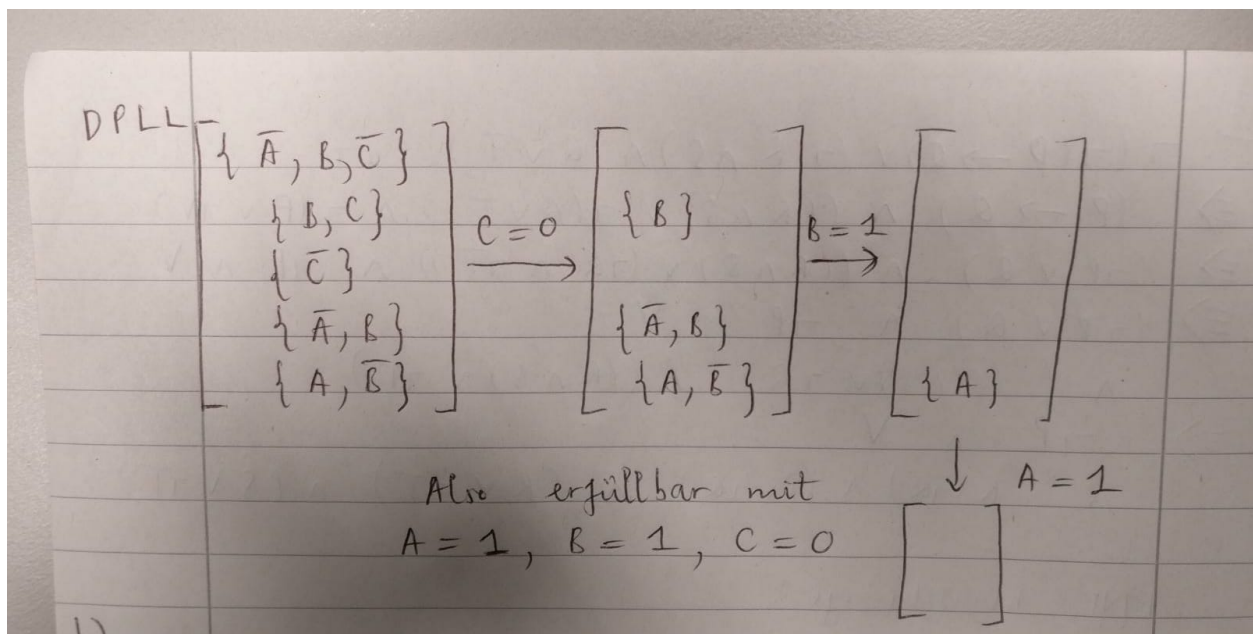 DPLL
{ A̅, B, C̅ }
{ B, C }
{ C̅ }
{ A̅, B }
{ A, B̅ }
C = 0
{ B }
{ A̅, B }
{ A, B̅ }
B = 1
{ A }
A = 1
Also erfüllbar mit
A = 1, B = 1, C = 0